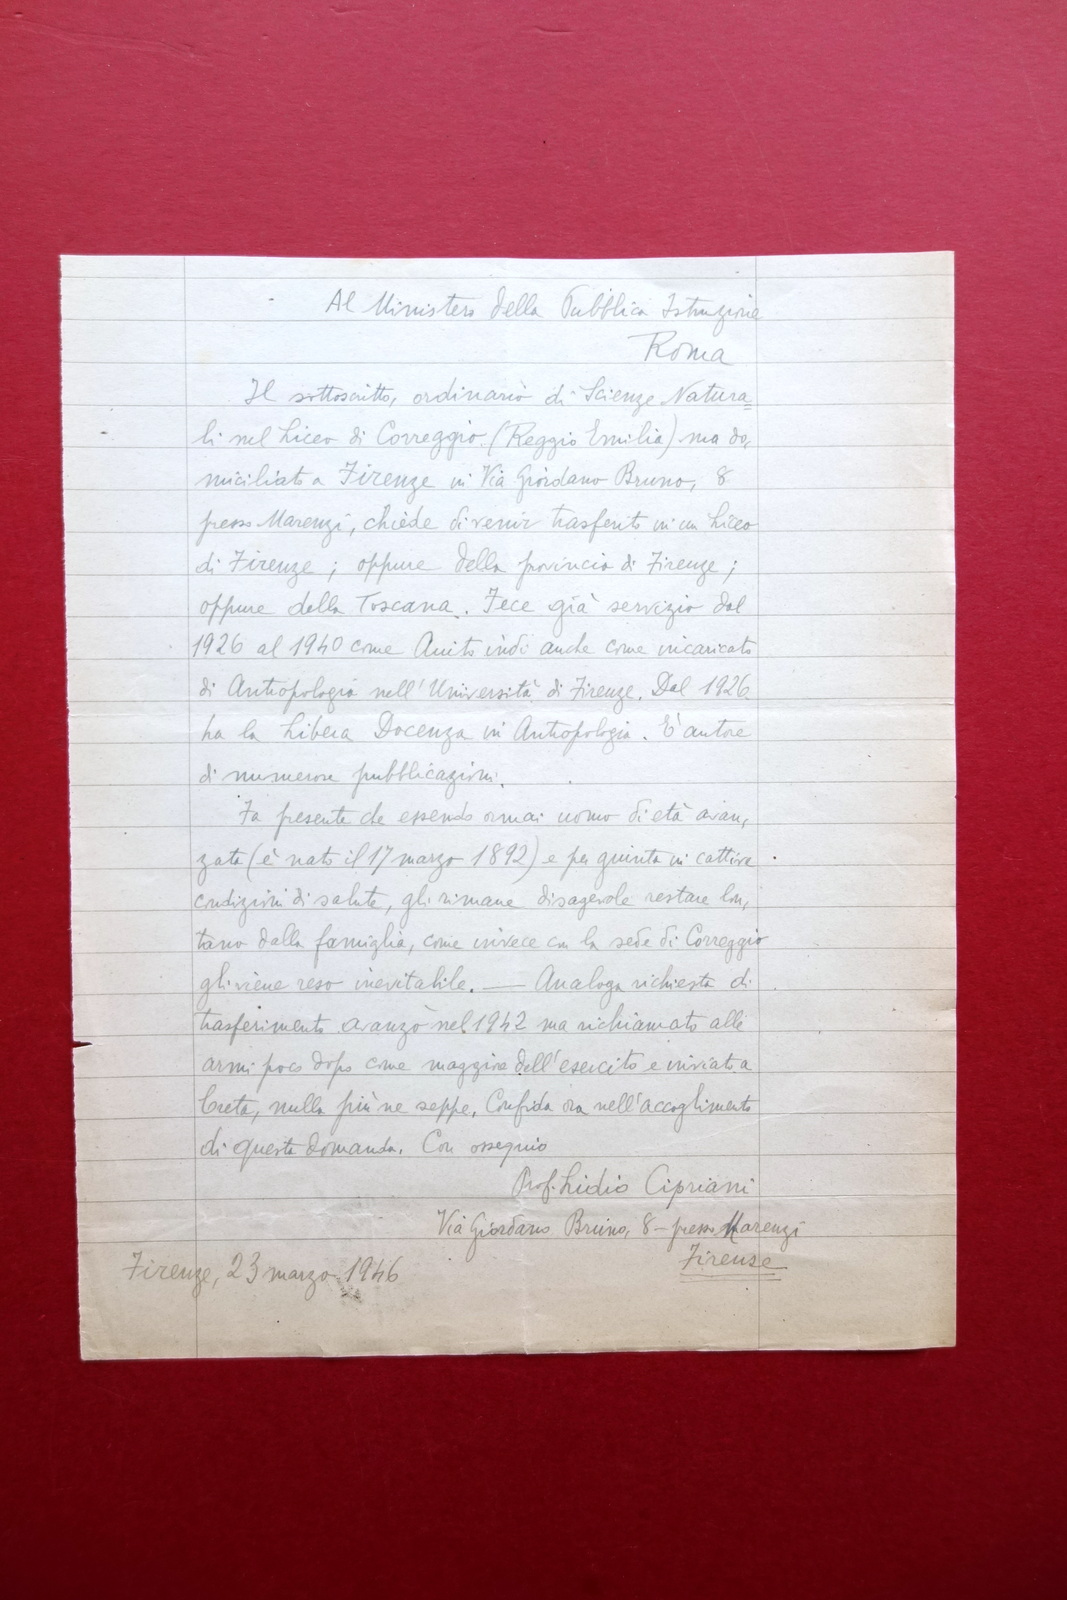 Al Ministero della Pubblica Istruzione
Roma
Il sottoscritto, ordinario di Scienze Natura=
li nel Liceo di Correggio (Reggio Emilia) ma do,
miciliato a Firenze in Via Giordano Bruno, 8
presso Marenzi, chiede di venir trasferito in un Liceo
di Firenze; oppure della provincia di Firenze;
oppure della Toscana. Fece già servizio dal
1926 al 1940 come Aiuto indi anche come incaricato
di Antropologia nell'Università di Firenze. Dal 1926
ha la Libera Docenza in Antropologia. È autore
di numerose pubblicazioni.
Fa presente che essendo ormai uomo di età avan,
zata (è nato il 17 marzo 1892) e per giunta in cattive
condizioni di salute, gli rimane disagevole restare lon,
tano dalla famiglia, come invece con la sede di Correggio
gli viene reso inevitabile. — Analoga richiesta di
trasferimento avanzò nel 1942 ma richiamato alle
armi poco dopo come maggiore dell'esercito e inviato a
Creta, nulla più ne seppe. Confida ora nell'accoglimento
di questa domanda. Con ossequio
Prof. Lidio Cipriani
Via Giordano Bruno, 8 - presso Marenzi
Firenze
Firenze, 23 marzo 1946